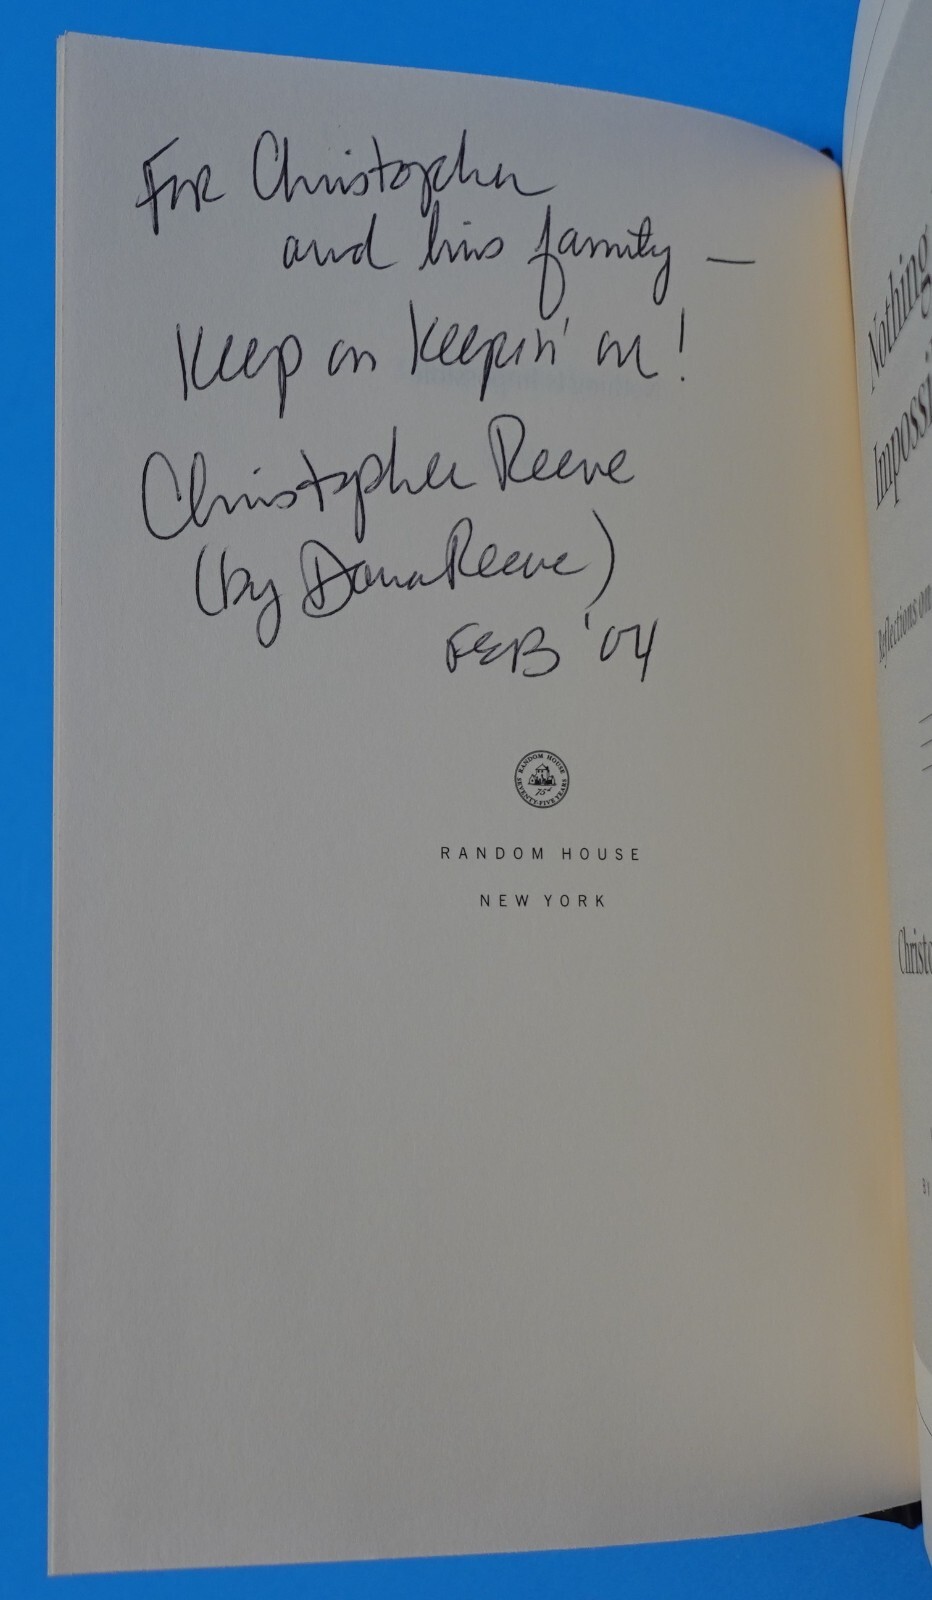 For Christopher
and his family —
Keep on Keepin' on!
Christopher Reeve
(by Dana Reeve)
FEB '04
RANDOM HOUSE
75
SEVENTY-FIVE YEARS
RANDOM HOUSE
NEW YORK
Nothing
Impossi
Reflections on
Christo
BY